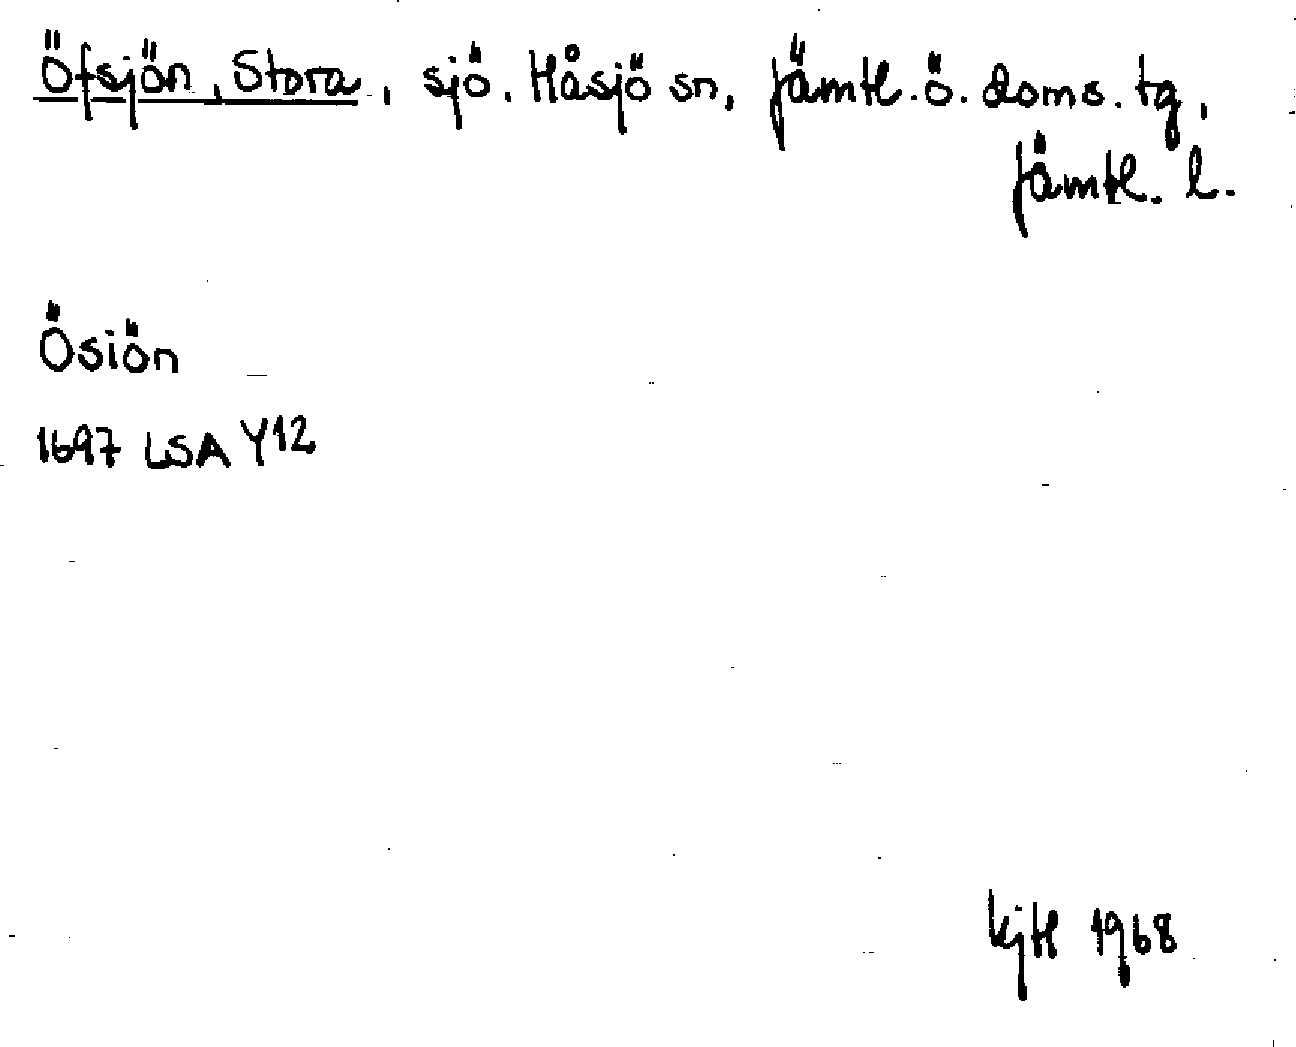 Öfsjön, Stora, sjö. Håsjö sn, Jämtl. ö. doms. tg,
Jämtl. l.
Ösiön
1697 LSA Y12
KjH 1968